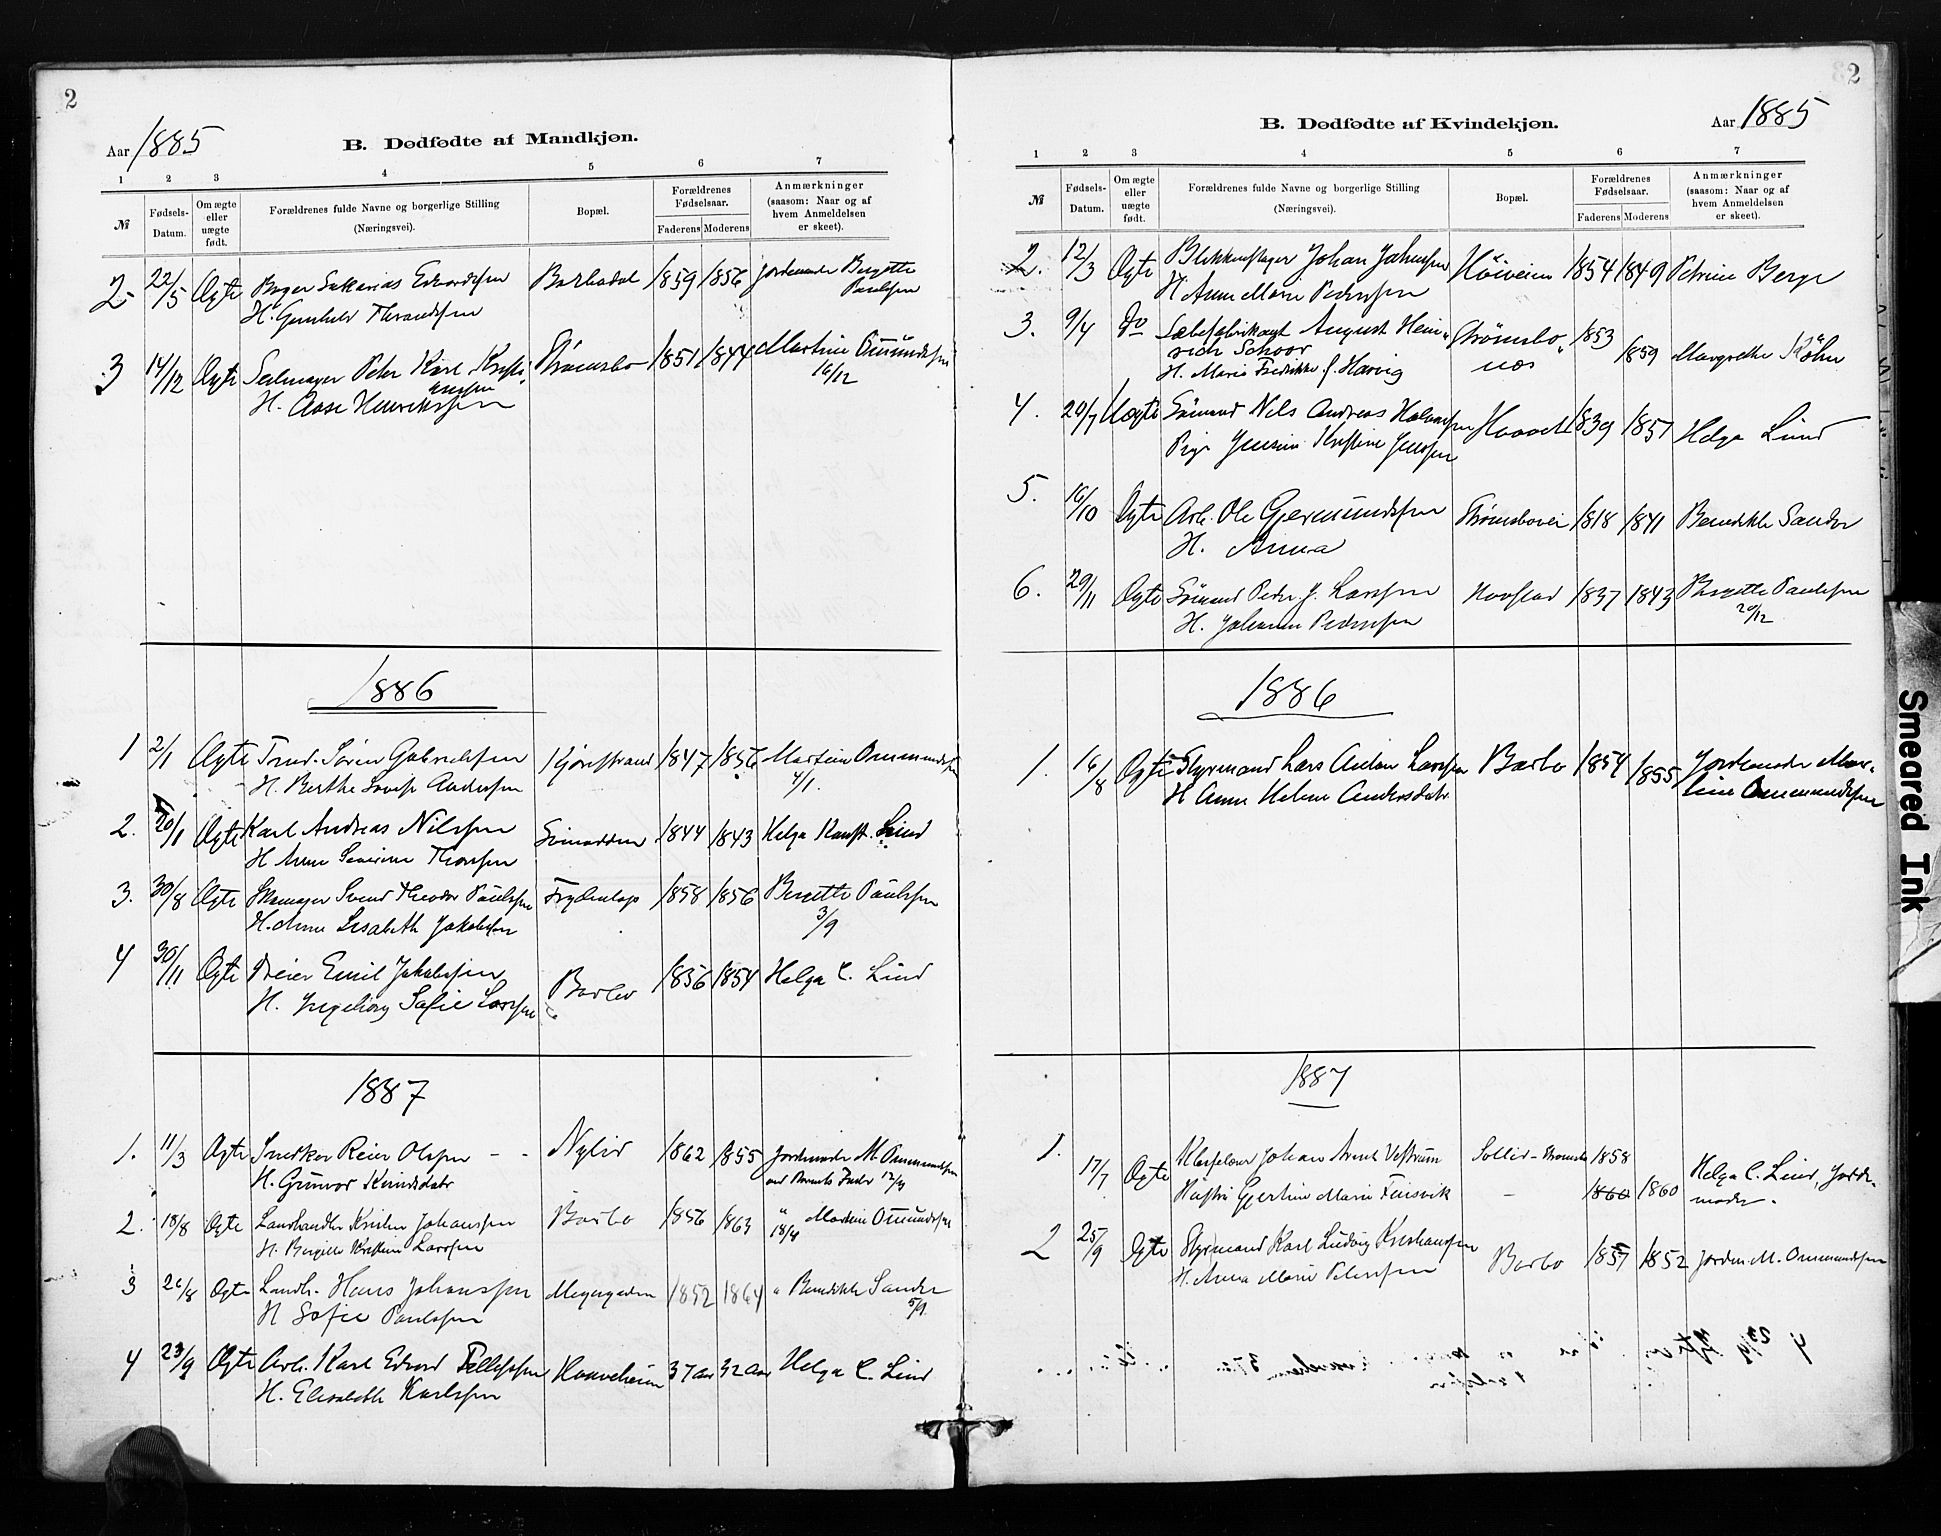 2
Aar 1885
B. Dødfødte af Mandkjøn.
1 2 3 4 5 6 7
№ Fødsels-Datum. Om ægte eller uægte født. Forældrenes fulde Navne og borgerlige Stilling (Næringsvei). Bopæl. Forældrenes Fødselsaar. Faderens Moderens Anmærkninger (saasom: Naar og af hvem Anmeldelsen er skeet).
2 22/5 Ægte Bager Sakarias Edvardsen Barbodal 1859 1856 Jordemoder Bergitte Paulsen
H. Gunhild
3 14/12 Ægte Seilmager Peter Karl Kristiansen Strømsbo 1851 1844 Martine Omundsen 16/12
H. Aase Henriksen
1886
1 2/1 Ægte Tmd. Søren Gabrielsen 1847 1856 Martine Ommundsen 4/1.
H. Berthe Andersen
2. 20/1 Ægte Karl Andreas Nilssen 1844 1843 Helga Lind
H Anne Severine
3. 30/8 Ægte Skomager Svend Theodor Paulssen 1858 1856 Bergitte Paulssen 3/9
H. Anne Lisabeth Jakobsen
4 30/11 Ægte Reier Emil Jakobssen Barbo 1856 1854 Helga C. Lind
H. Ingeborg Sofie Larssen
1887
1. 11/3 Ægte Snedker Reier Olssen - - Nylid 1862 1855 Jordemoder M. Ommundsen
H. Gunvor
2. 18/8 Ægte Landhandler Kristen Johanssen Barbo 1856 1863 " Martine Omundsen
H. Bergitte Kristine Larssen
3 26/8 Ægte Landh. Hans Johanssen Meyergaden 1852 1864 " Benedikte Sander 5/9.
H Sofie Paulssen
4 23/9 Ægte Arb. Karl Edvard Tellefssen 37 aar 32 aar Helga C. Lind
H. Elisabeth Karlssen
2
B. Dødfødte af Kvindekjøn.
Aar 1885
1 2 3 4 5 6 7
№ Fødsels-Datum. Om ægte eller uægte født. Forældrenes fulde Navne og borgerlige Stilling (Næringsvei). Bopæl. Forældrenes Fødselsaar. Faderens Moderens Anmærkninger (saasom: Naar og af hvem Anmeldelsen er skeet).
2. 12/3 Ægte Blikkenslager Johan Johnsen Høiveien 1854 1849 Petrine Berge
H. Anne Marie Pedersen
3. 9/4 Do Sæbefabrikant August Heinrich Schoor Strømsbonæs 1853 1859 Margrethe Køhn
H. Maria Fredrikke f. Harvig
4. 20/7 Uægte Sømand Nils Andreas 1839 1857 Helga Lind
Pige Jensine Kristine Jenssen
5. 16/10 Ægte Arb. Ole Gjermundsen Strømsboveien 1818 1841 Benedikte Sander
H. Anna
6. 29/11 Ægte Sømand Peder J. Larssen Hovstad 1837 1843 Bergitte Paulssen 20/12
H. Johanne Pederssen
1886
1. 16/8 Ægte Styrmand Lars Anton Larssen Barbo 1854 1855 Jordemoder Martine Ommundsen
H Anne Helene Andersdatr
1887
1. 17/7 Ægte Johan Arent Vestrum 1858
Hustru Gjertine Marie 1860 1860 Helga C. Lind, Jordemoder.
2 25/9 Ægte Styrmand Karl Ludvig Kristianssen Barbo 1857 1852 Jordem M. Ommundsen
H. Anna Marie Peterssen
Smeared Ink